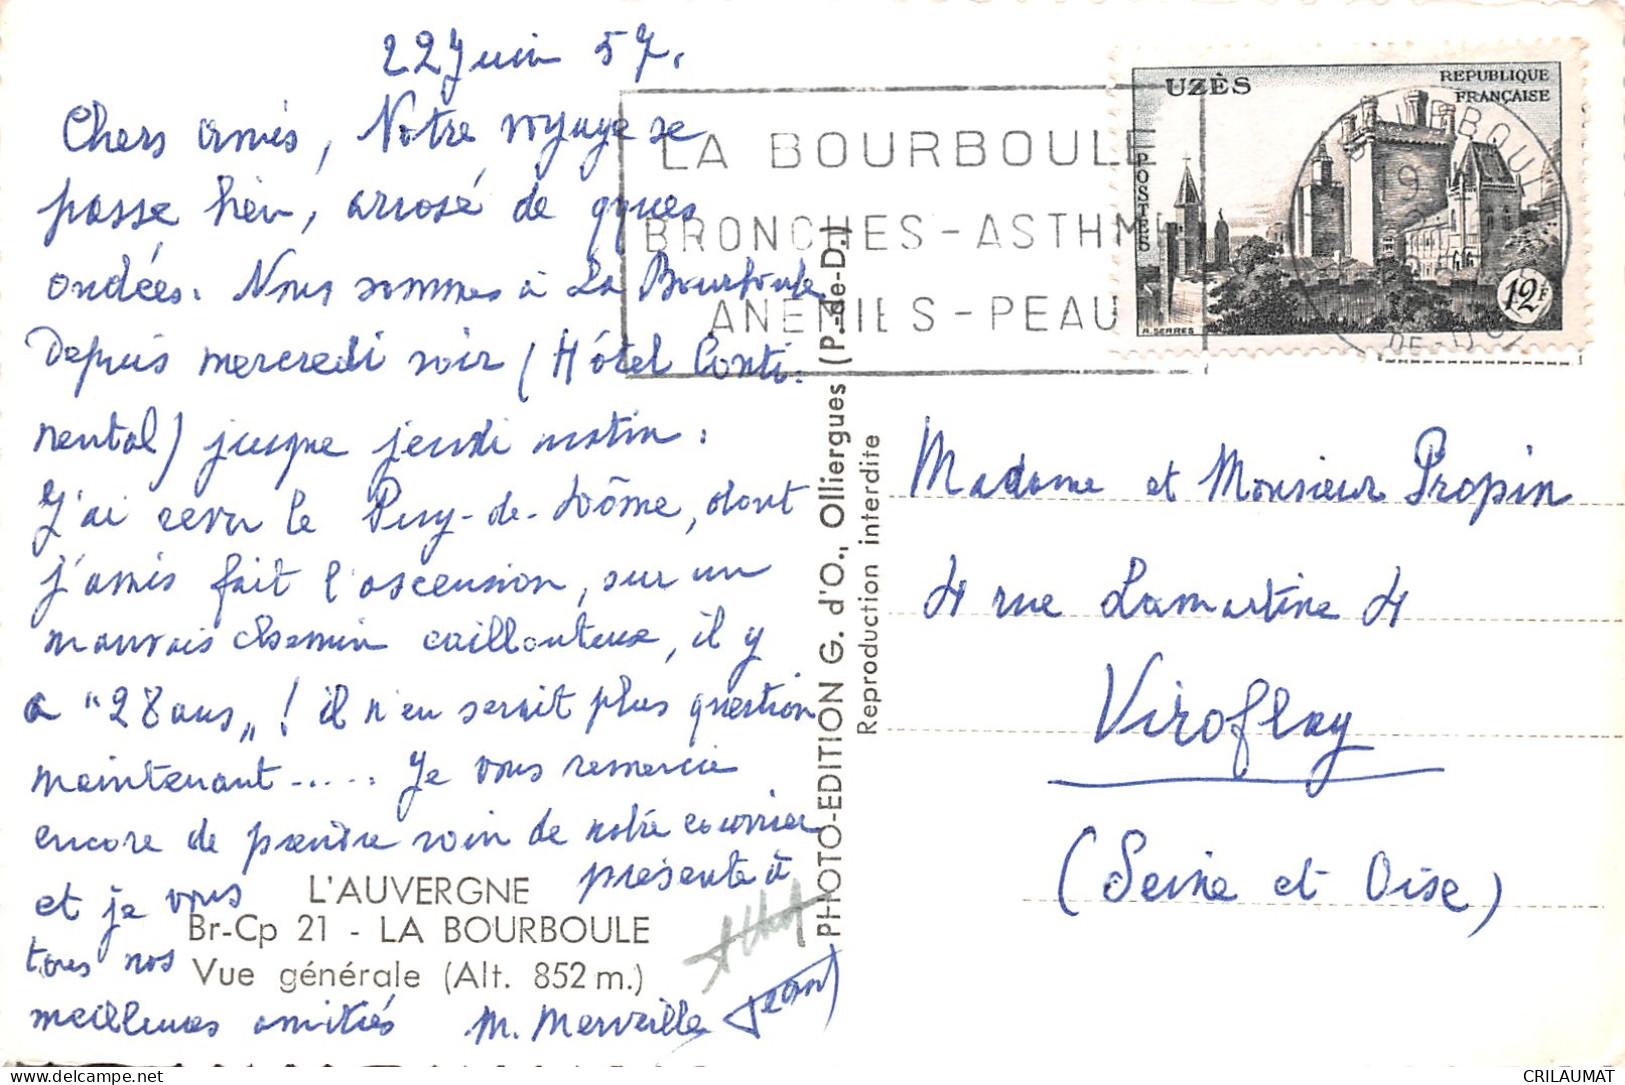 22 Juin 57.
Chers amis, Notre voyage se
passe bien, arrosé de qques
ondées. Nous sommes à La Bourboule
Depuis mercredi soir (Hôtel Conti-
nental) jusque jeudi matin.
J'ai revu le Puy-de-Dôme, dont
j'amis fait l'ascension, sur un
mauvais chemin caillouteux, il y
a "28 ans„ ! il n'en serait plus question
maintenant..... Je vous remercie
encore de prendre soin de notre courrier
et je vous présente à
tous nos
meilleures amitiés M. Merveille
Jean
L'AUVERGNE
Br-Cp 21 - LA BOURBOULE
Vue générale (Alt. 852 m.)
PHOTO-EDITION G. d'O., Olliergues (P.-de-D.)
Reproduction interdite
LA BOURBOULE
BRONCHES - ASTHME
ANEMIES - PEAU
UZÈS
REPUBLIQUE
FRANÇAISE
POSTES
12F
R. SERRES
Madame et Monsieur Propin
4 rue Lamartine 4
Viroflay
(Seine et Oise)
CRILAUMAT
https://www.delcampe.net